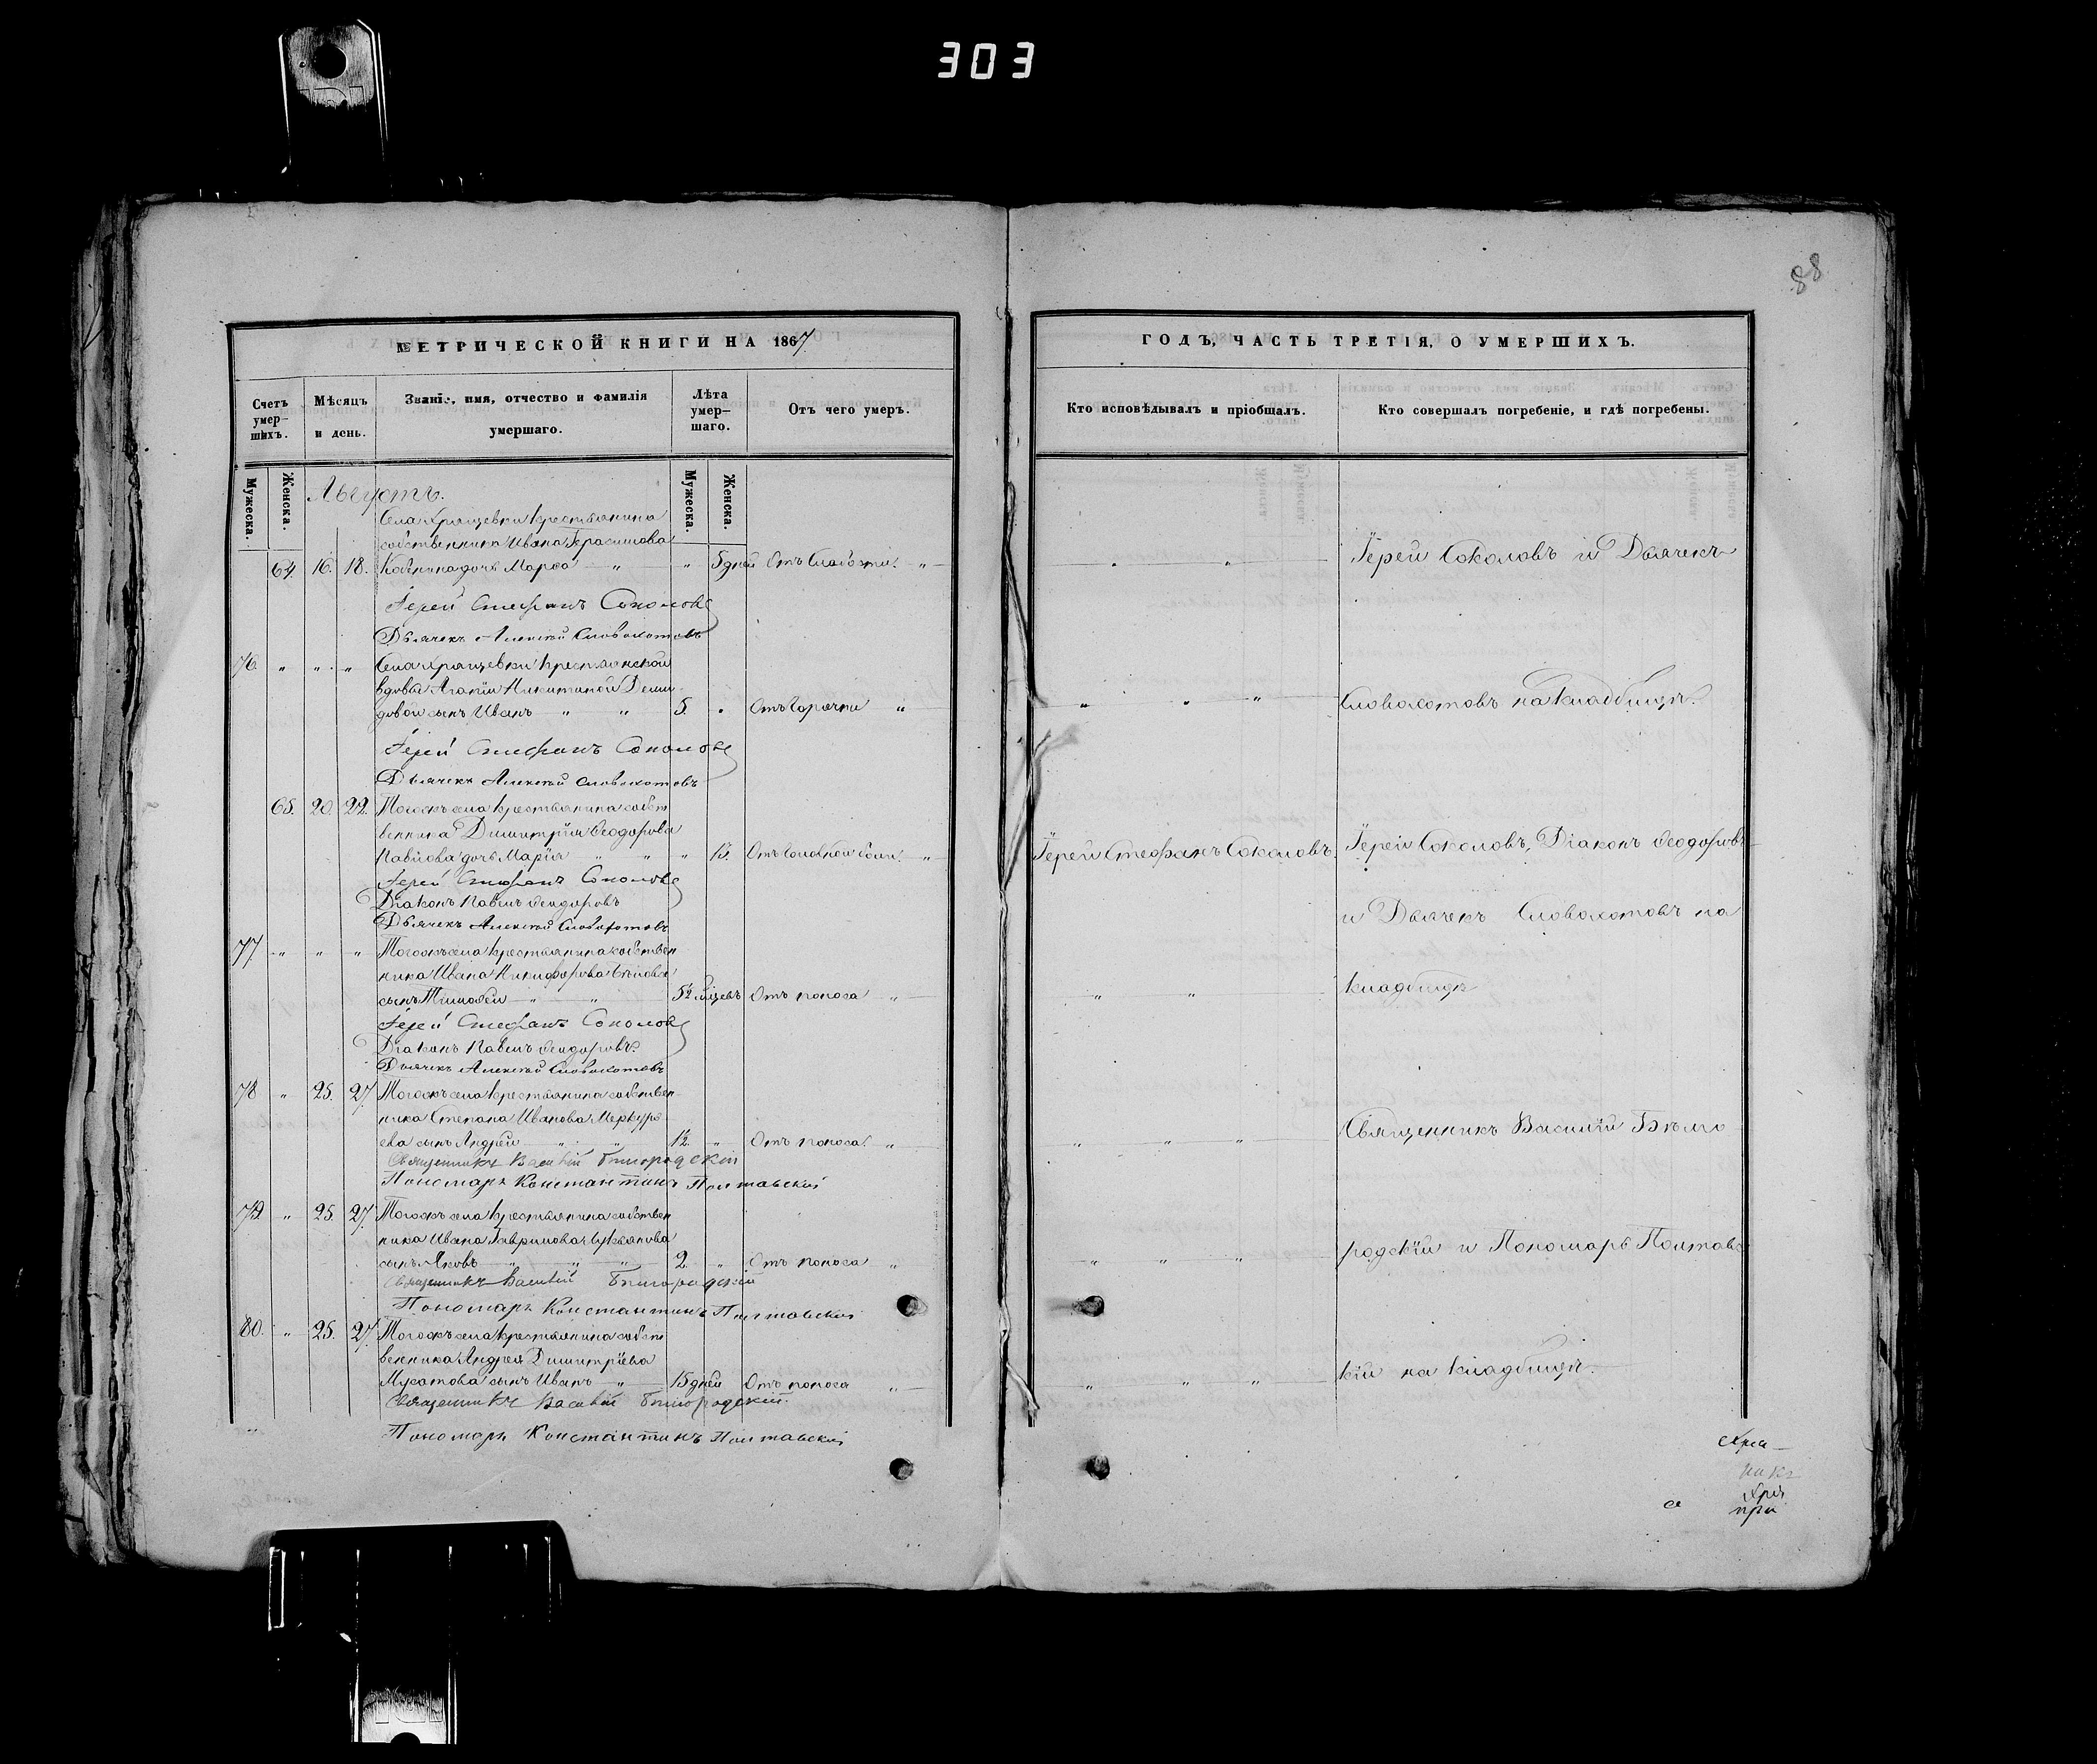 303
88
МЕТРИЧЕСКОЙ КНИГИ НА 1867
ГОДЪ, ЧАСТЬ ТРЕТІЯ, О УМЕРШИХЪ.
Счетъ умер-шихъ.
Мѣсяцъ и день.
Званіе, имя, отчество и фамилія умершаго.
Лѣта умер-шаго.
Отъ чего умеръ.
Кто исповѣдывалъ и пріобщалъ.
Кто совершалъ погребеніе, и гдѣ погребены.
Мужеска.
Женска.
Мужеска.
Женска.
Августъ.
Села Хрящевки крестьянина
собственника Ивана Герасимова
64. 16. 18. дочь Марѳа " " 5 дней Отъ слабости. "
Іерей Соколовъ и Дьячекъ
Іерей Стефанъ Соколовъ
Дьячекъ Алексѣй Словохотовъ
76. " " " Села Хрящевки крестьянской
вдовы Агапіи Никитиной Деми
довой сынъ Иванъ " " 5. " Отъ горячки "
Словохотовъ на кладбищѣ.
Іерей Стефанъ Соколовъ
Дьячекъ Алексѣй Словохотовъ
65. 20. 22. Тогожъ села крестьянина собст
венника Димитрія Ѳеодорова
Павлова дочь Марія " " " 13. Отъ головной боли. "
Іерей Стефанъ Соколовъ.
Іерей Соколовъ, Діаконъ Ѳеодоровъ
Іерей Стефанъ Соколовъ
Діаконъ Павелъ Ѳеодоровъ
Дьячекъ Алексѣй Словохотовъ
и Дьячекъ Словохотовъ на
77 " " " Тогожъ села крестьянина собствен
ника Ивана Никифорова Бѣлова
сынъ Тимоѳей " " Отъ поноса "
кладбищѣ
Іерей Стефанъ Соколовъ
Діаконъ Павелъ Ѳеодоровъ.
Дьячекъ Алексѣй Словохотовъ
78 " 25. 27. Тогожъ села крестьянина собствен
ника Степана Иванова Меркурь
ева сынъ Андрей " " 1½. " Отъ поноса. "
Священникъ Василій Бѣлго
Священникъ Василій Бѣлгородскій
Пономарь Константинъ Полтавскій
79. " 25. 27. Тогожъ села крестьянина собствен
ника Ивана Гаврилова Лукьянова
сынъ Яковъ " " " 2. " Отъ поноса "
родскій и Пономарь Полтавс
Священникъ Василій Бѣлгородскій
Пономарь Константинъ Полтавскій
80. " 25. 27. Тогожъ села крестьянина собст
венника Андрея Димитріева
Мусатова сынъ Иванъ " 15 дней Отъ поноса "
кій на кладбищѣ.
Священникъ Василій Бѣлгородскій.
Пономарь Константинъ Полтавскій
при